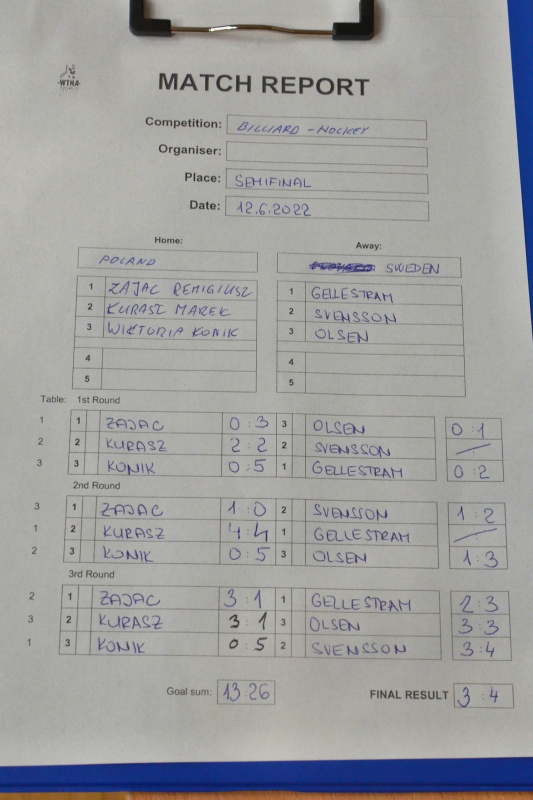 WTHA
MATCH REPORT
Competition: BILLIARD - HOCKEY
Organiser:
Place: SEMIFINAL
Date: 12.6.2022
Home: Away:
POLAND SWEDEN
1 ZAJAC REMIGIUSZ 1 GELLESTRAM
2 KURASZ MAREK 2 SVENSSON
3 WIKTORIA KONIK 3 OLSEN
4 4
5 5
Table: 1st Round
1 1 ZAJAC 0 : 3 3 OLSEN 0 : 1
2 2 KURASZ 2 : 2 2 SVENSSON —
3 3 KONIK 0 : 5 1 GELLESTRAM 0 : 2
2nd Round
3 1 ZAJAC 1 : 0 2 SVENSSON 1 : 2
1 2 KURASZ 4 : 4 1 GELLESTRAM —
2 3 KONIK 0 : 5 3 OLSEN 1 : 3
3rd Round
2 1 ZAJAC 3 : 1 1 GELLESTRAM 2 : 3
3 2 KURASZ 3 : 1 3 OLSEN 3 : 3
1 3 KONIK 0 : 5 2 SVENSSON 3 : 4
Goal sum: 13 : 26 FINAL RESULT 3 : 4